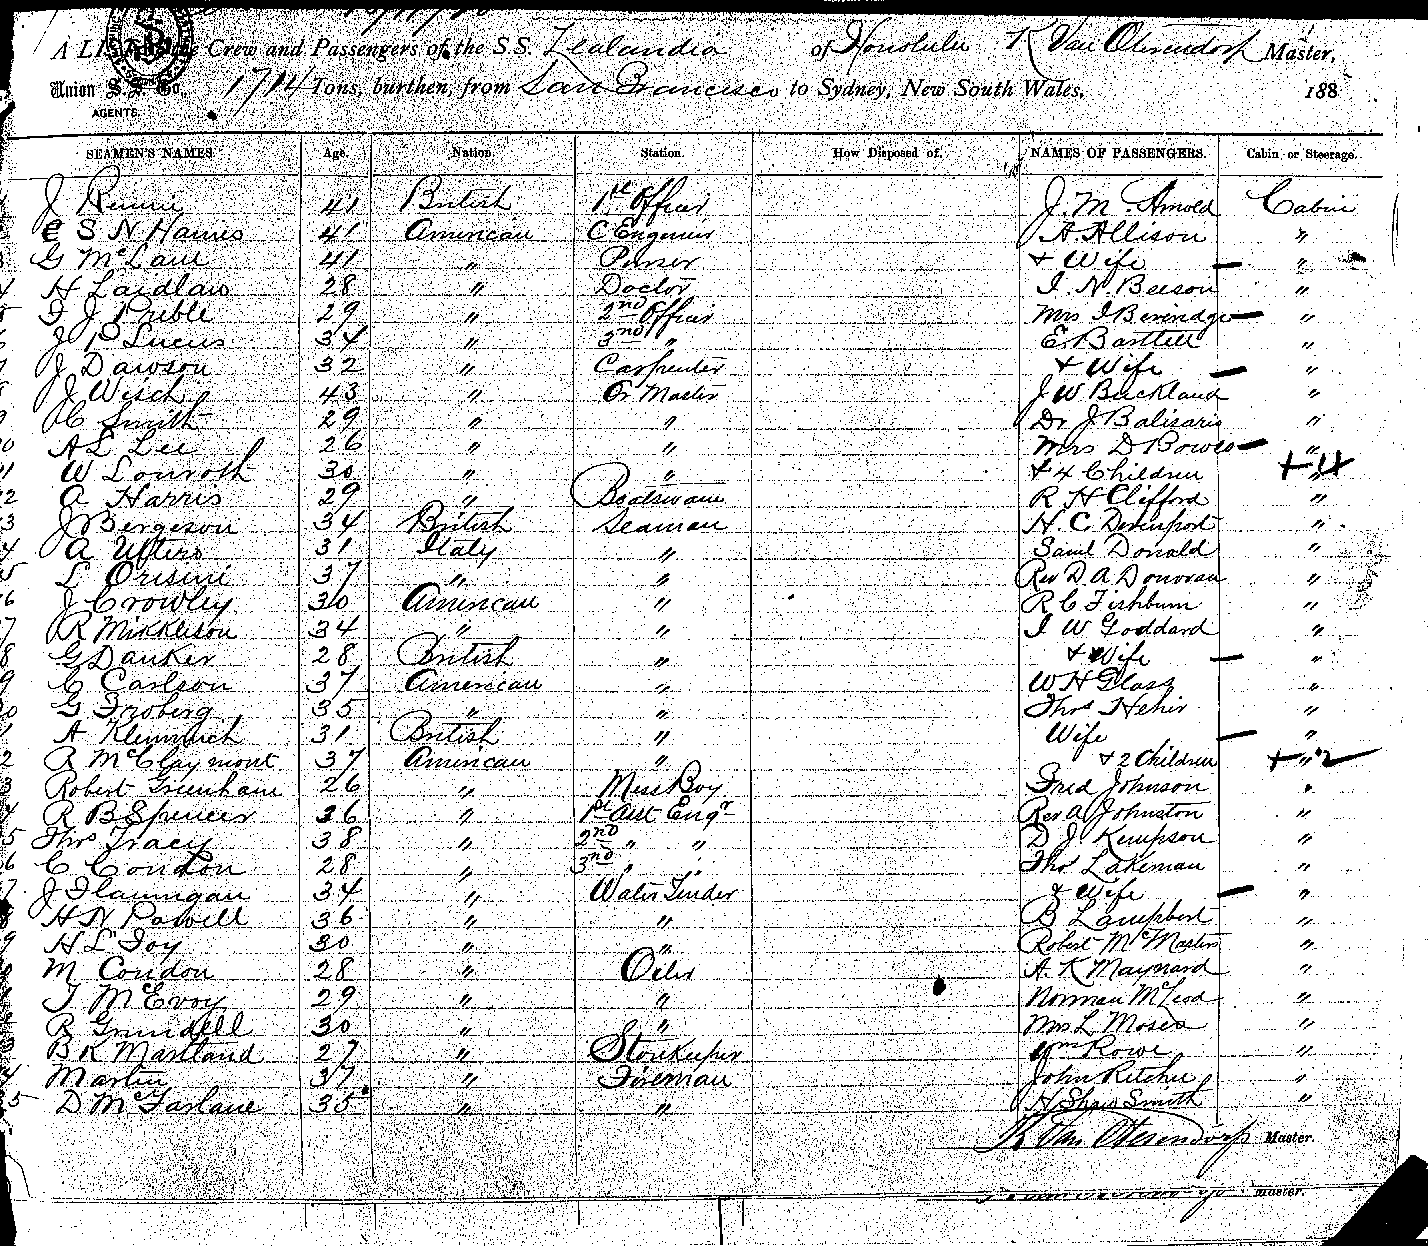 A LIST of the Crew and Passengers of the S.S. Zealandia of Honolulu R Van Oterendorp Master,
Union S.S. Co., 1714 Tons, burthen, from San Francisco to Sydney, New South Wales, 188
AGENTS.
SEAMEN'S NAMES Age. Nation. Station. How Disposed of. NAMES OF PASSENGERS. Cabin or Steerage.
J Rennie 41 British 1st Officer J. M. Arnold Cabin
C S N Harris 41 American C Engineer A. Allison "
G McLane 41 " Purser + Wife — "
H Laidlaw 28 " Doctor I. N. Beeson "
F J Prible 29 " 2nd Officer Mrs I Beveridge — "
J P Lucus 34 " 3rd " E Bartlett "
J Dawson 32 " Carpenter + Wife — "
J Wisch 43 " Qr Master J W Buckland "
C Smith 29 " " Dr J Balisario "
A L Lee 26 " " Mrs D Bowes — "
W Lonroth 30 " " + 4 Children + 4
A Harris 29 " Boatswain R H Clifford "
J Bergeson 34 British Seaman H. C Devenport "
A Utters 31 Italy " Saml Donald "
L Orisini 37 " " Rev D A Donovan "
J Crowley 30 American " R C Fishburn "
R Mikkleson 34 " " I W Goddard "
G Danker 28 British " + Wife — "
C Carlson 37 American " W H Glass "
G Froberg 35 " " Thos Hehir "
A 31 British " Wife — "
R McClaymont 37 American " + 2 Children + 2
Robert Greenham 26 " Mess Boy Fred Johnson "
R B Spencer 36 " 1st Asst Engr Rev A Johnston "
Thos Tracy 38 " 2nd " " D J Kempson "
C Condon 28 " 3rd " " Thos Lakeman "
J Flannigan 34 " Water Tender & Wife — "
H N Powell 36 " " B Lamphert "
H L Foy 30 " " Robert McMaster "
M Condon 28 " Oiler A. K Maynard "
T McEvoy 29 " " Norman McLeod "
R Grindell 30 " " Mrs L Moses "
B K Martland 27 " Storekeeper Wm Rowe "
Martin 37 " Fireman John Ritchie "
D McFarlane 35 " " H Smith "
R Van Oterendorp Master.
Master.